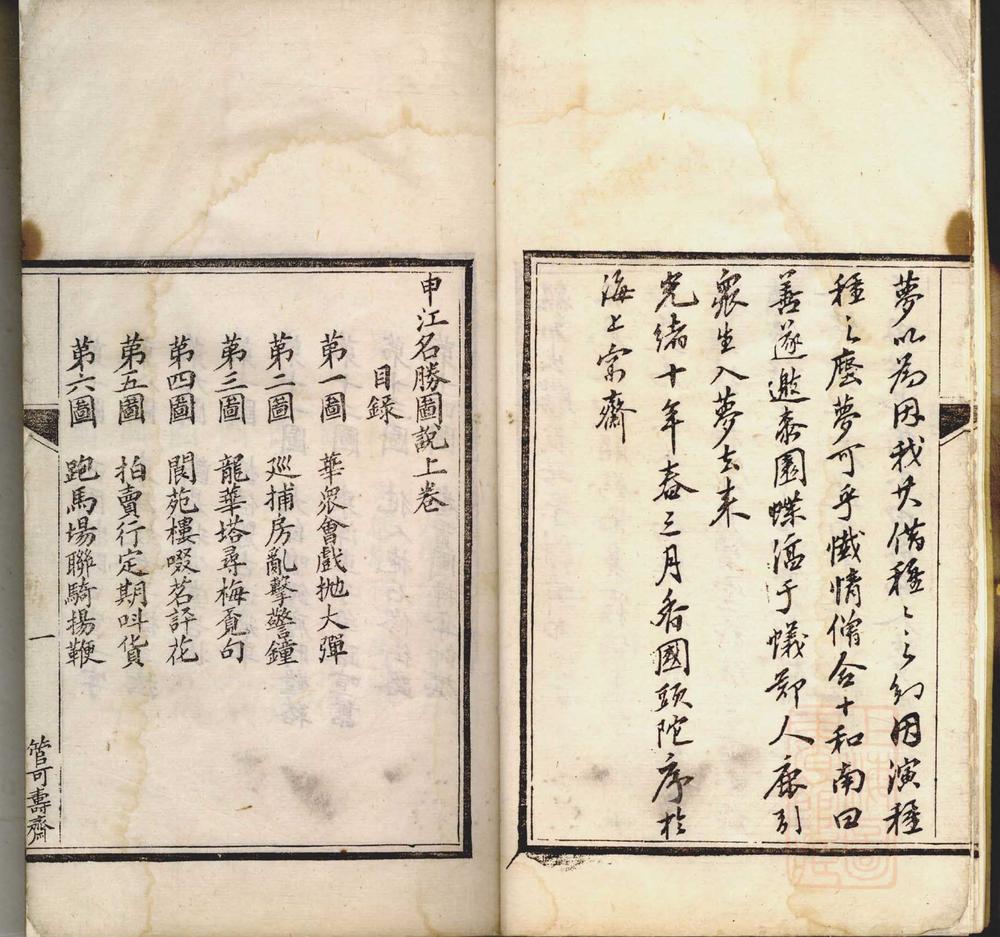 夢以為因我其借種種之幻因演種
種之塵夢可乎懺情僧合十和南曰
善遂邀泰園蝶滔于蟻鄭人鹿引
眾生入夢去来
光緒十年春三月香國頭陀序於
海上宗齋
申江名勝圖説上卷
目錄
第一圖 華眾會戲拋大彈
第二圖 巡捕房亂擊警鐘
第三圖 龍華塔尋梅覓句
第四圖 閬苑樓啜茗評花
第五圖 拍賣行定期呌貨
第六圖 跑馬場聯騎揚鞭
一
管可壽齋